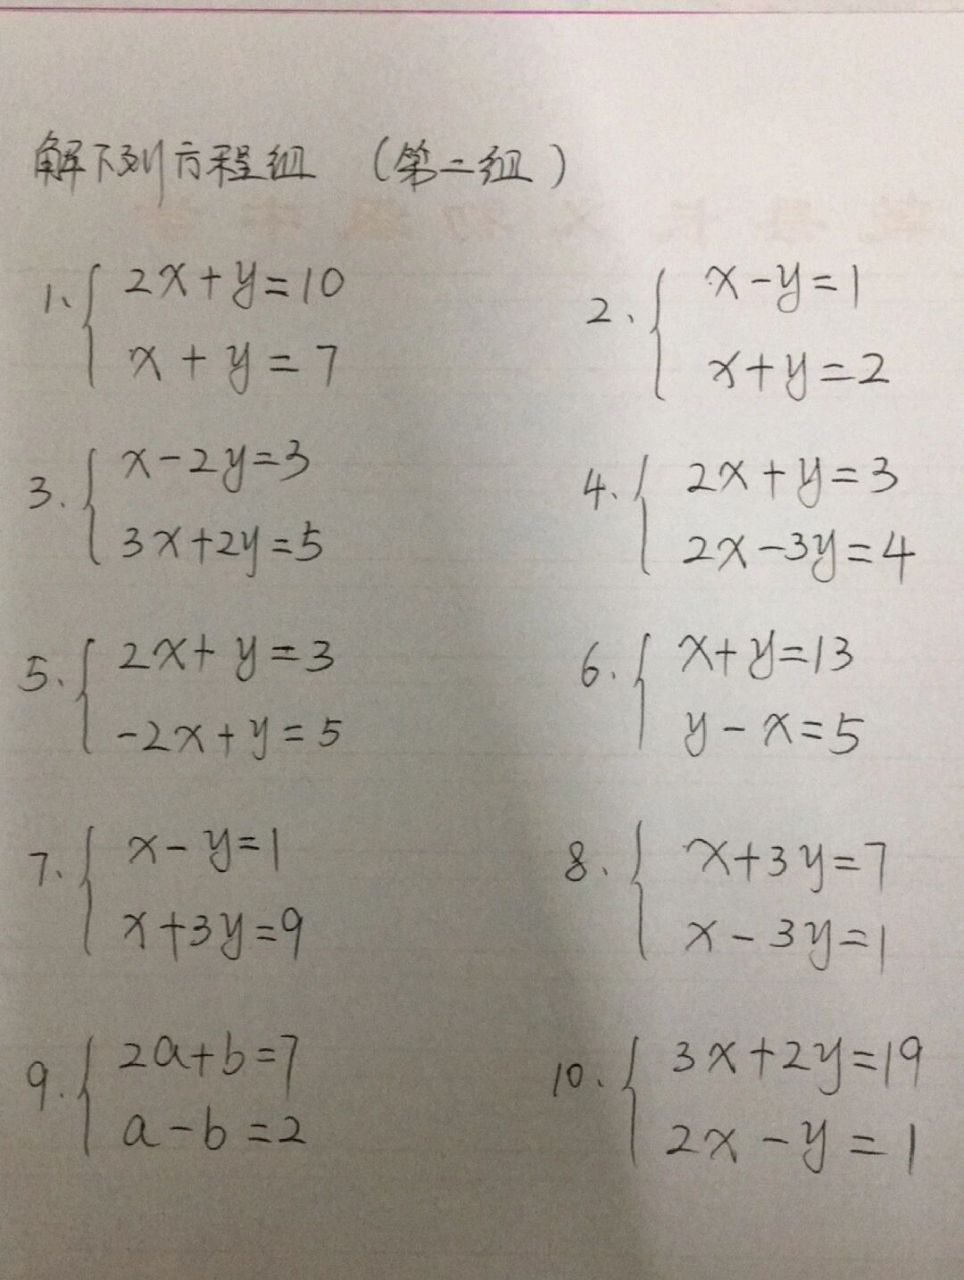 解下列方程组 (第二组)
1、{ 2x+y=10
x+y=7
2、{ x-y=1
x+y=2
3.{ x-2y=3
3x+2y=5
4.{ 2x+y=3
2x-3y=4
5.{ 2x+y=3
-2x+y=5
6.{ x+y=13
y-x=5
7.{ x-y=1
x+3y=9
8、{ x+3y=7
x-3y=1
9.{ 2a+b=7
a-b=2
10.{ 3x+2y=19
2x-y=1